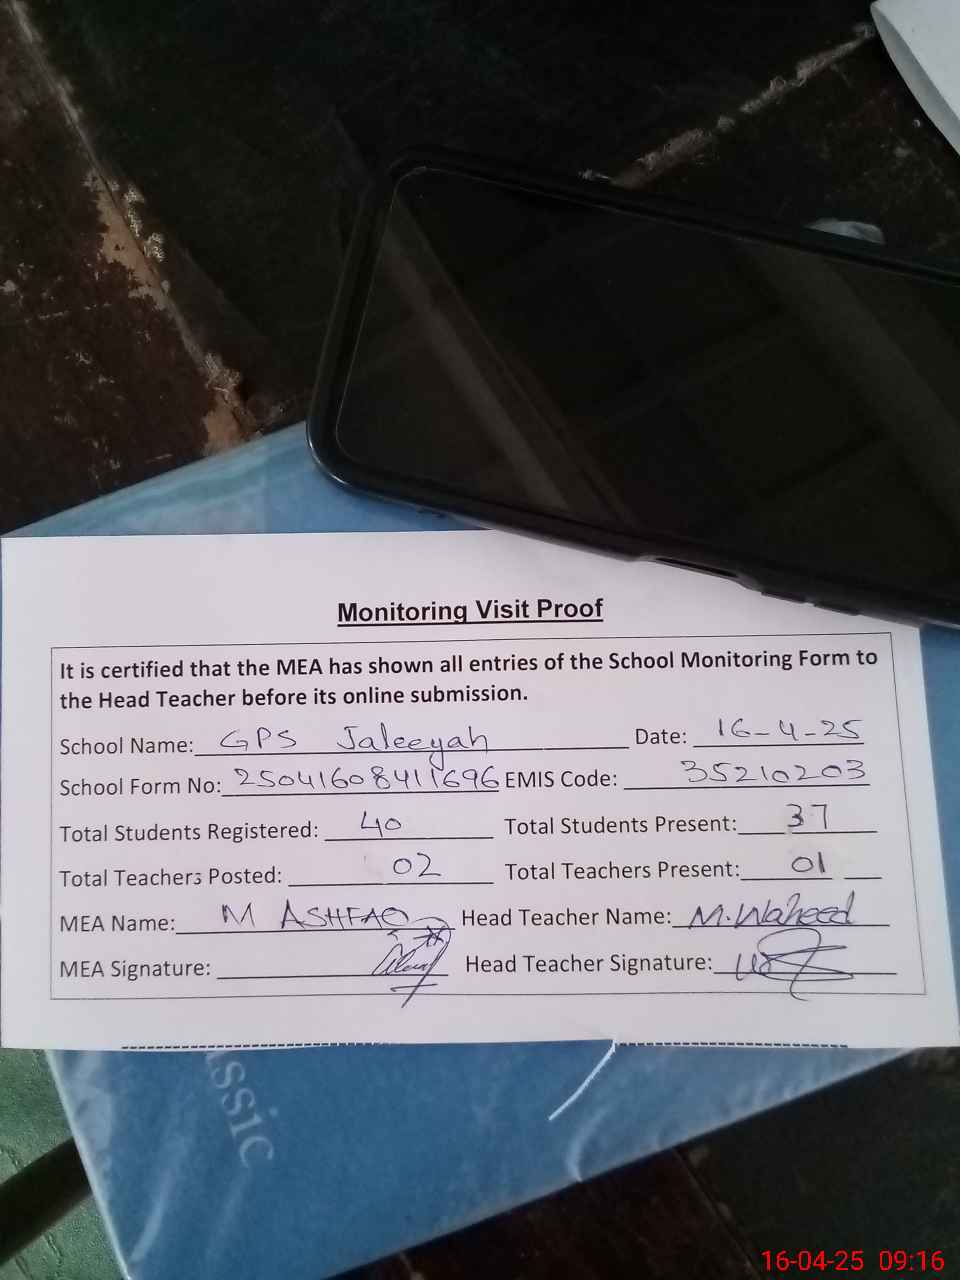 Monitoring Visit Proof
It is certified that the MEA has shown all entries of the School Monitoring Form to
the Head Teacher before its online submission.
School Name: GPS Jaleeyah Date: 16-4-25
School Form No: 25041608411696 EMIS Code: 35210203
Total Students Registered: 40 Total Students Present: 37
Total Teachers Posted: 02 Total Teachers Present: 01
MEA Name: M ASHFAQ Head Teacher Name: M.Waheed
MEA Signature: Head Teacher Signature:
assic
16-04-25 09:16